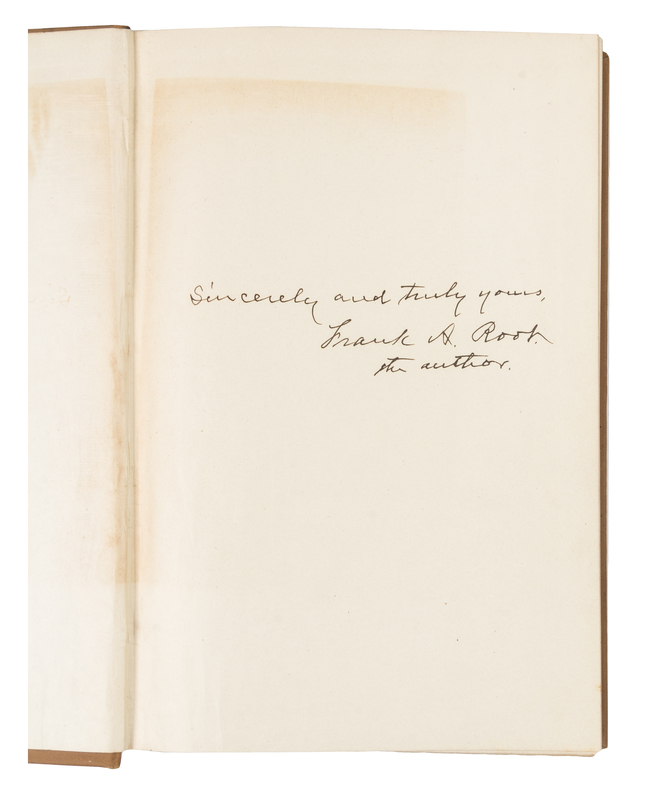 Sincerely and truly yours,
Frank A. Root.
the author.